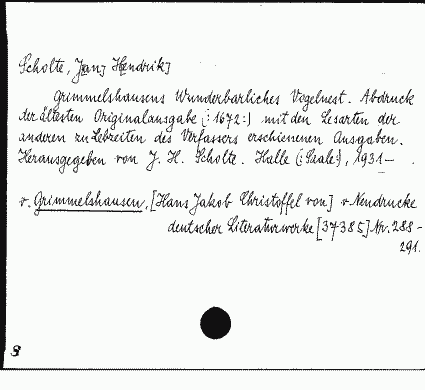 Scholte, J[an] H[endrik]
Grimmelshausens Wunderbarliches Vogelnest. Abdruck
der ältesten Originalausgabe (:1672:) mit den Lesarten der
anderen zu Lebzeiten des Verfassers erschienenen Ausgaben.
Herausgegeben von J. H. Scholte. Halle (:Saale:), 1931-
v. Grimmelshausen, [Hans Jakob Christoffel von] v Neudrucke
deutscher Literaturwerke [37385] Nr. 288-
291.